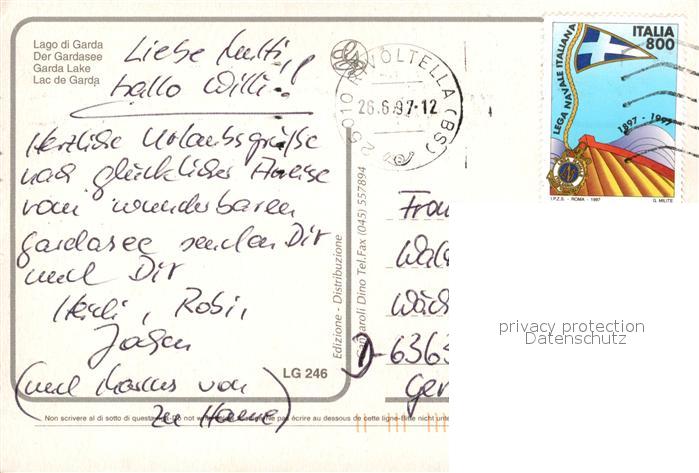 Lago di Garda
Der Gardasee
Garda Lake
Lac de Garda
Liebe Mutti,
hallo Willi!
Herzliche Urlaubsgrüße
nach glücklicher Anreise
vom wunderbaren
Gardasee senden Dir
und Dir
Heidi, Robi,
Jochen
(und Marcus von
zu Hause)
LG 246
Edizione - Distribuzione
Dino Tel.Fax (045) 557894
25010 RIVOLTELLA (BS)
26.6.97-12
ITALIA
800
LEGA NAVALE ITALIANA
1897-1997
I.P.Z.S. - ROMA - 1997
G. MILITE
Frau
Wal
Wäc
D-6363
Ger
privacy protection
Datenschutz
Non scrivere al di sotto di questa
Ne pas écrire au dessous de cette ligne-Bitte nicht unte